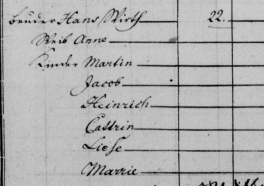 brüder Hans Wirth 22.
Weib Anne
Kinder Martin
Jacob
Heinrich
Cattrin
Liese
Marrie